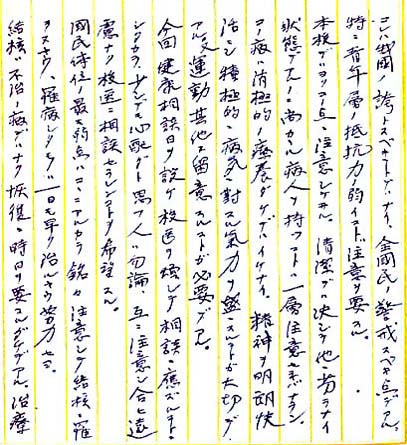 コレハ我国ノ誇トスベキコトデハナイ、全国民ノ警戒スベキ点デアル。
特ニ青年層ノ抵抗力ノ弱イコトハ注意ヲ要スル。
本校デハヨクコノ点ニ注意シテヰル。清潔デハ決シテ他ニ劣ラナイ
状態デアルノニ尚カカル病人ヲ持ツコトハ一層注意セネバナラン。
コノ病ハ消極的ノ療養ダケデハイケナイ。精神ヲ明朗快
活ニシ積極的ニ病気ニ対スル気力ヲ盛ニスルコトガ大切デ
アル。又運動其他ニ留意スルコトガ必要デアル。
今回健康相談日ヲ設ケ校医ヲ煩シテ相談ニ応ズルコトニ
シタカラ、少シデモ心配ダト思フ人ハ勿論、互ニ注意シ合ヒ遠
慮ナク校医ニ相談セラレンコトヲ希望スル。
国民体位ノ最モ弱点ハココニアルカラ銘々注意シテ結核ニ罹
ラヌヤウ、罹病シタモノハ一日モ早ク治ルヤウ努力セヨ。
結核ハ不治ノ病デハナク恢復ニ時日ヲ要スルダケデアル。治療